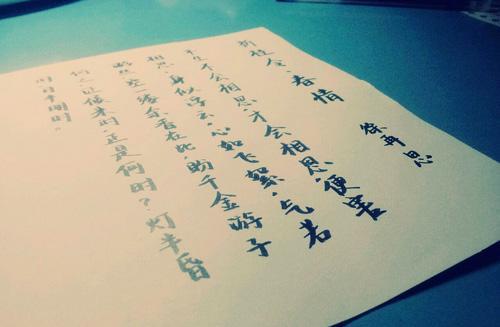 折桂令·春情 徐再思
平生不会相思,才会相思,便害
相思。身似浮云,心如飞絮,气若
游丝。空一缕余香在此,盼千金游子
何之。证候来时,正是何时?灯半昏
时,月半明时。